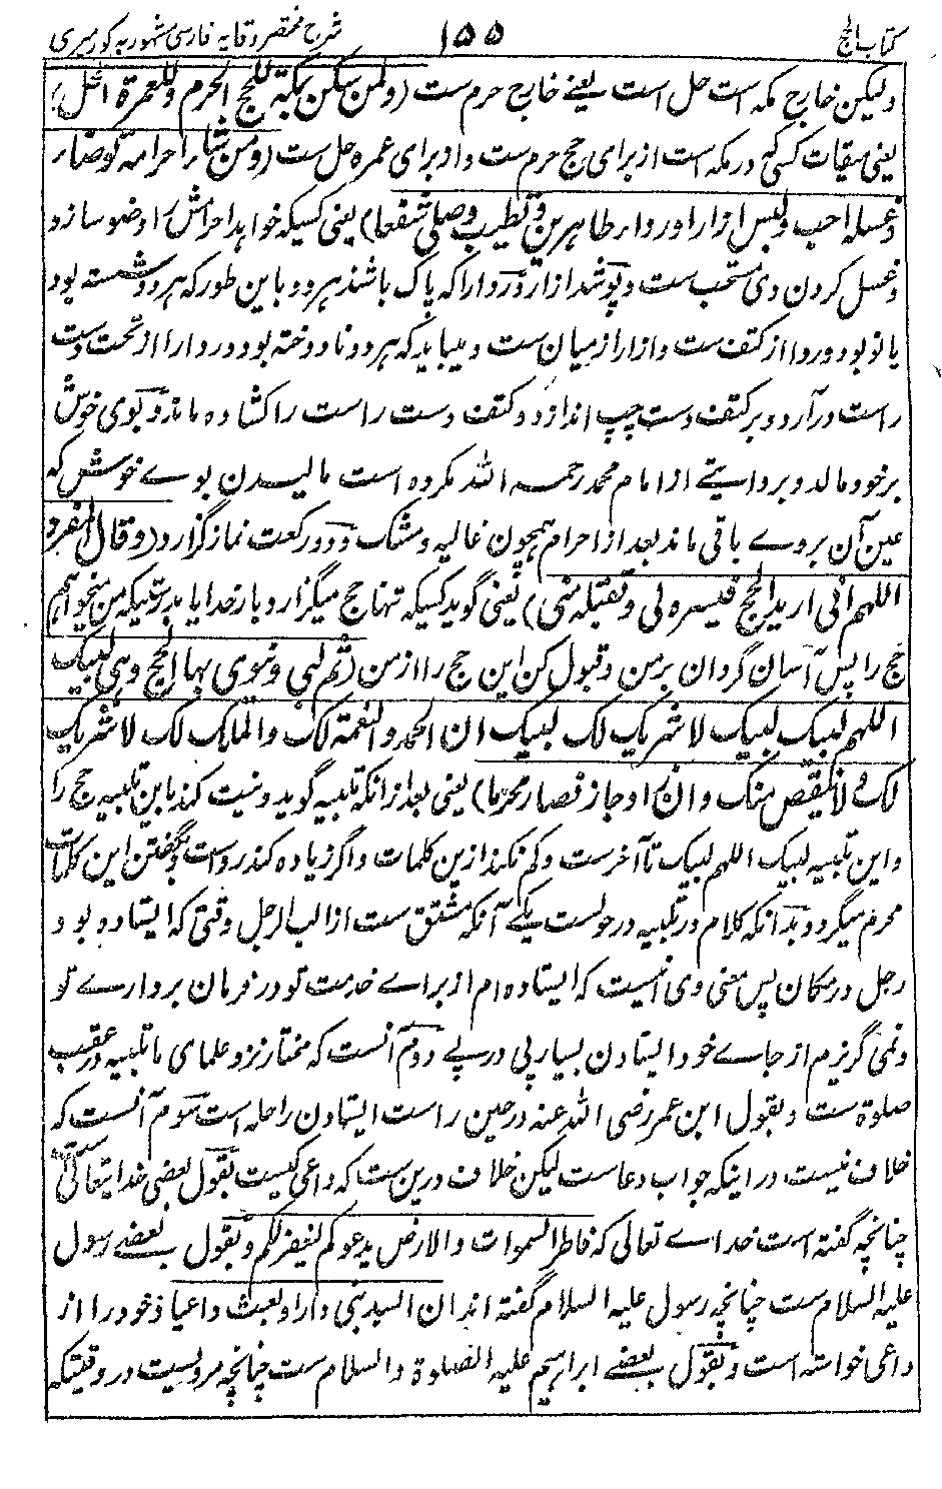 کتاب الحج ۱۵۵ شرح مختصر وقایه فارسی مشهور به کورمیری
ولیکن خارج مکه است حل است یعنے خارج حرم ست (ولمن سکن بمکة للحج الحرم وللعمرة الحل)
یعنی میقات کسی که در مکه است از برای حج حرم ست و از برای عمره حل ست (ومن شاء احرامه توضأ
وغسله احب ولبس ازارا ورداء طاهرین وتطیب وصلی شفعا) یعنی کسیکه خواهد احرامش را وضو سازد
وغسل کردن وی مستحب ست وپوشد ازار ورداء را که پاک باشند هر دو باین طور که هر دو شسته بود
یا نو بود وردا از کتف ست وازار از میان ست ومیباید که هر دو نادوخته بود وردا را از تحت دست
راست در آرد وبر کتف دست چپ اندازد وکتف دست راست را کشاده ماند وبوی خوش
بر خود مالد وبر روایتے از امام محمد رحمه الله مکروه است مالیدن بوے خوش که
عین آن بروے باقی ماند بعد از احرام همچون غالیه ومشک ودو رکعت نماز گزارد (وقال المفرد
اللهم انی ارید الحج فیسره لی وتقبله منی) یعنی گوید کسیکه تنها حج میگزارد بار خدایا بدرستیکه من میخواهم
حج را پس آسان گردان بر من وقبول کن این حج را از من (ثم لبی وینوی بها الحج وهی لبیک
اللهم لبیک لبیک لا شریک لک لبیک ان الحمد والنعمة لک والملک لک لا شریک
لک ولا ینقص منک وان زاد جاز فصار محرما) یعنی بعد از انکه تلبیه گوید ونیت کند باین تلبیه حج را
واین تلبیه لبیک اللهم لبیک تا آخر ست وکم نکند ازین کلمات واگر زیاده کند رواست وبگفتن این کلمات
محرم میگردد بدانکه کلام در تلبیه در جوابست یکے آنکه مشتق ست از الب الرجل وقتی که ایستاده بود
رجل در مکان پس معنی وی اینست که ایستاده ام از براے خدمت تو در فرمان بردارے تو
ونمی گریزم از جاے خود ایستادن بسیار پی در پے دوم آنست که مختار نزد علمای ما تلبیه در عقیب
صلوة ست وبقول ابن عمر رضی الله عنه در حین راست ایستادن راحله است سوم آنست که
خلاف نیست در اینکه جواب دعاست لیکن خلاف درین ست که داعی کیست بقول بعضی خدایتعالی
چنانچه گفته است خداے تعالی که فاطر السموات والارض یدعوکم لیغفر لکم وبقول بعضے رسول
علیه السلام ست چنانچه رسول علیه السلام گفته اند ان السید بنی دارا وبعث داعیا وخود را از
داعی خواسته است وبقول بعضے ابراهیم علیه الصلوة والسلام ست چنانچه مرویست در وقتیکه